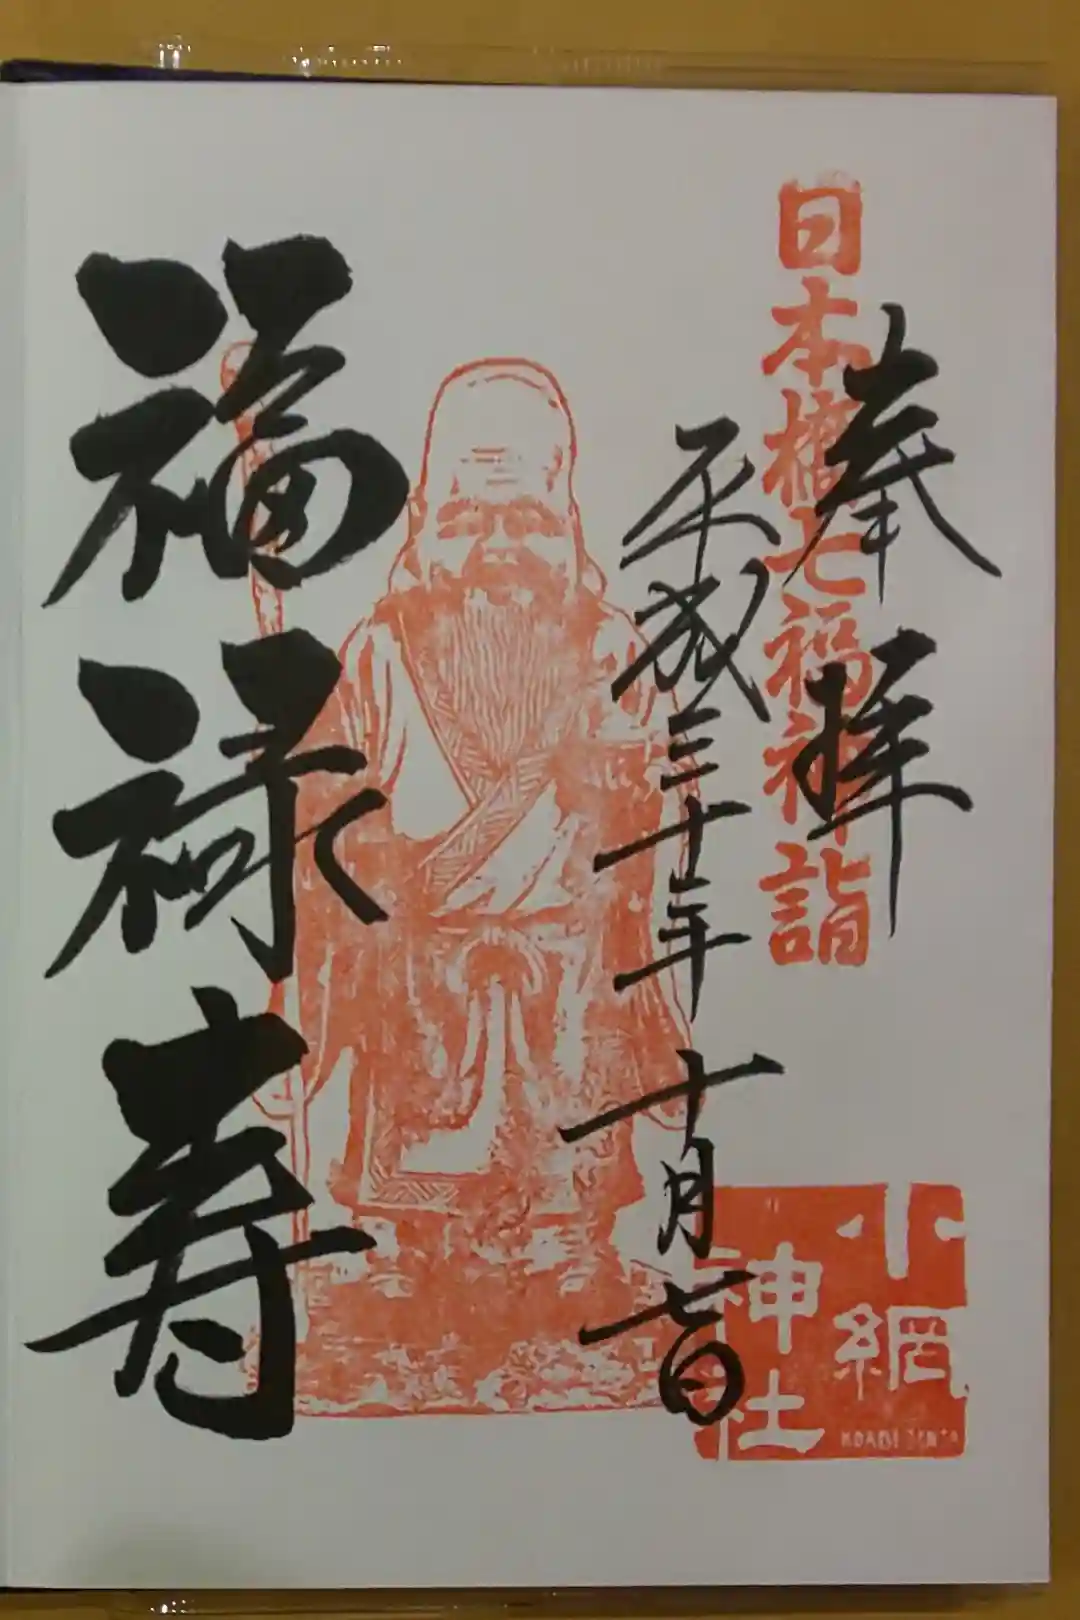 奉拝
日本橋七福神詣
平成三十年十月七日
福禄寿
小網
神社
KOAMI JINJA